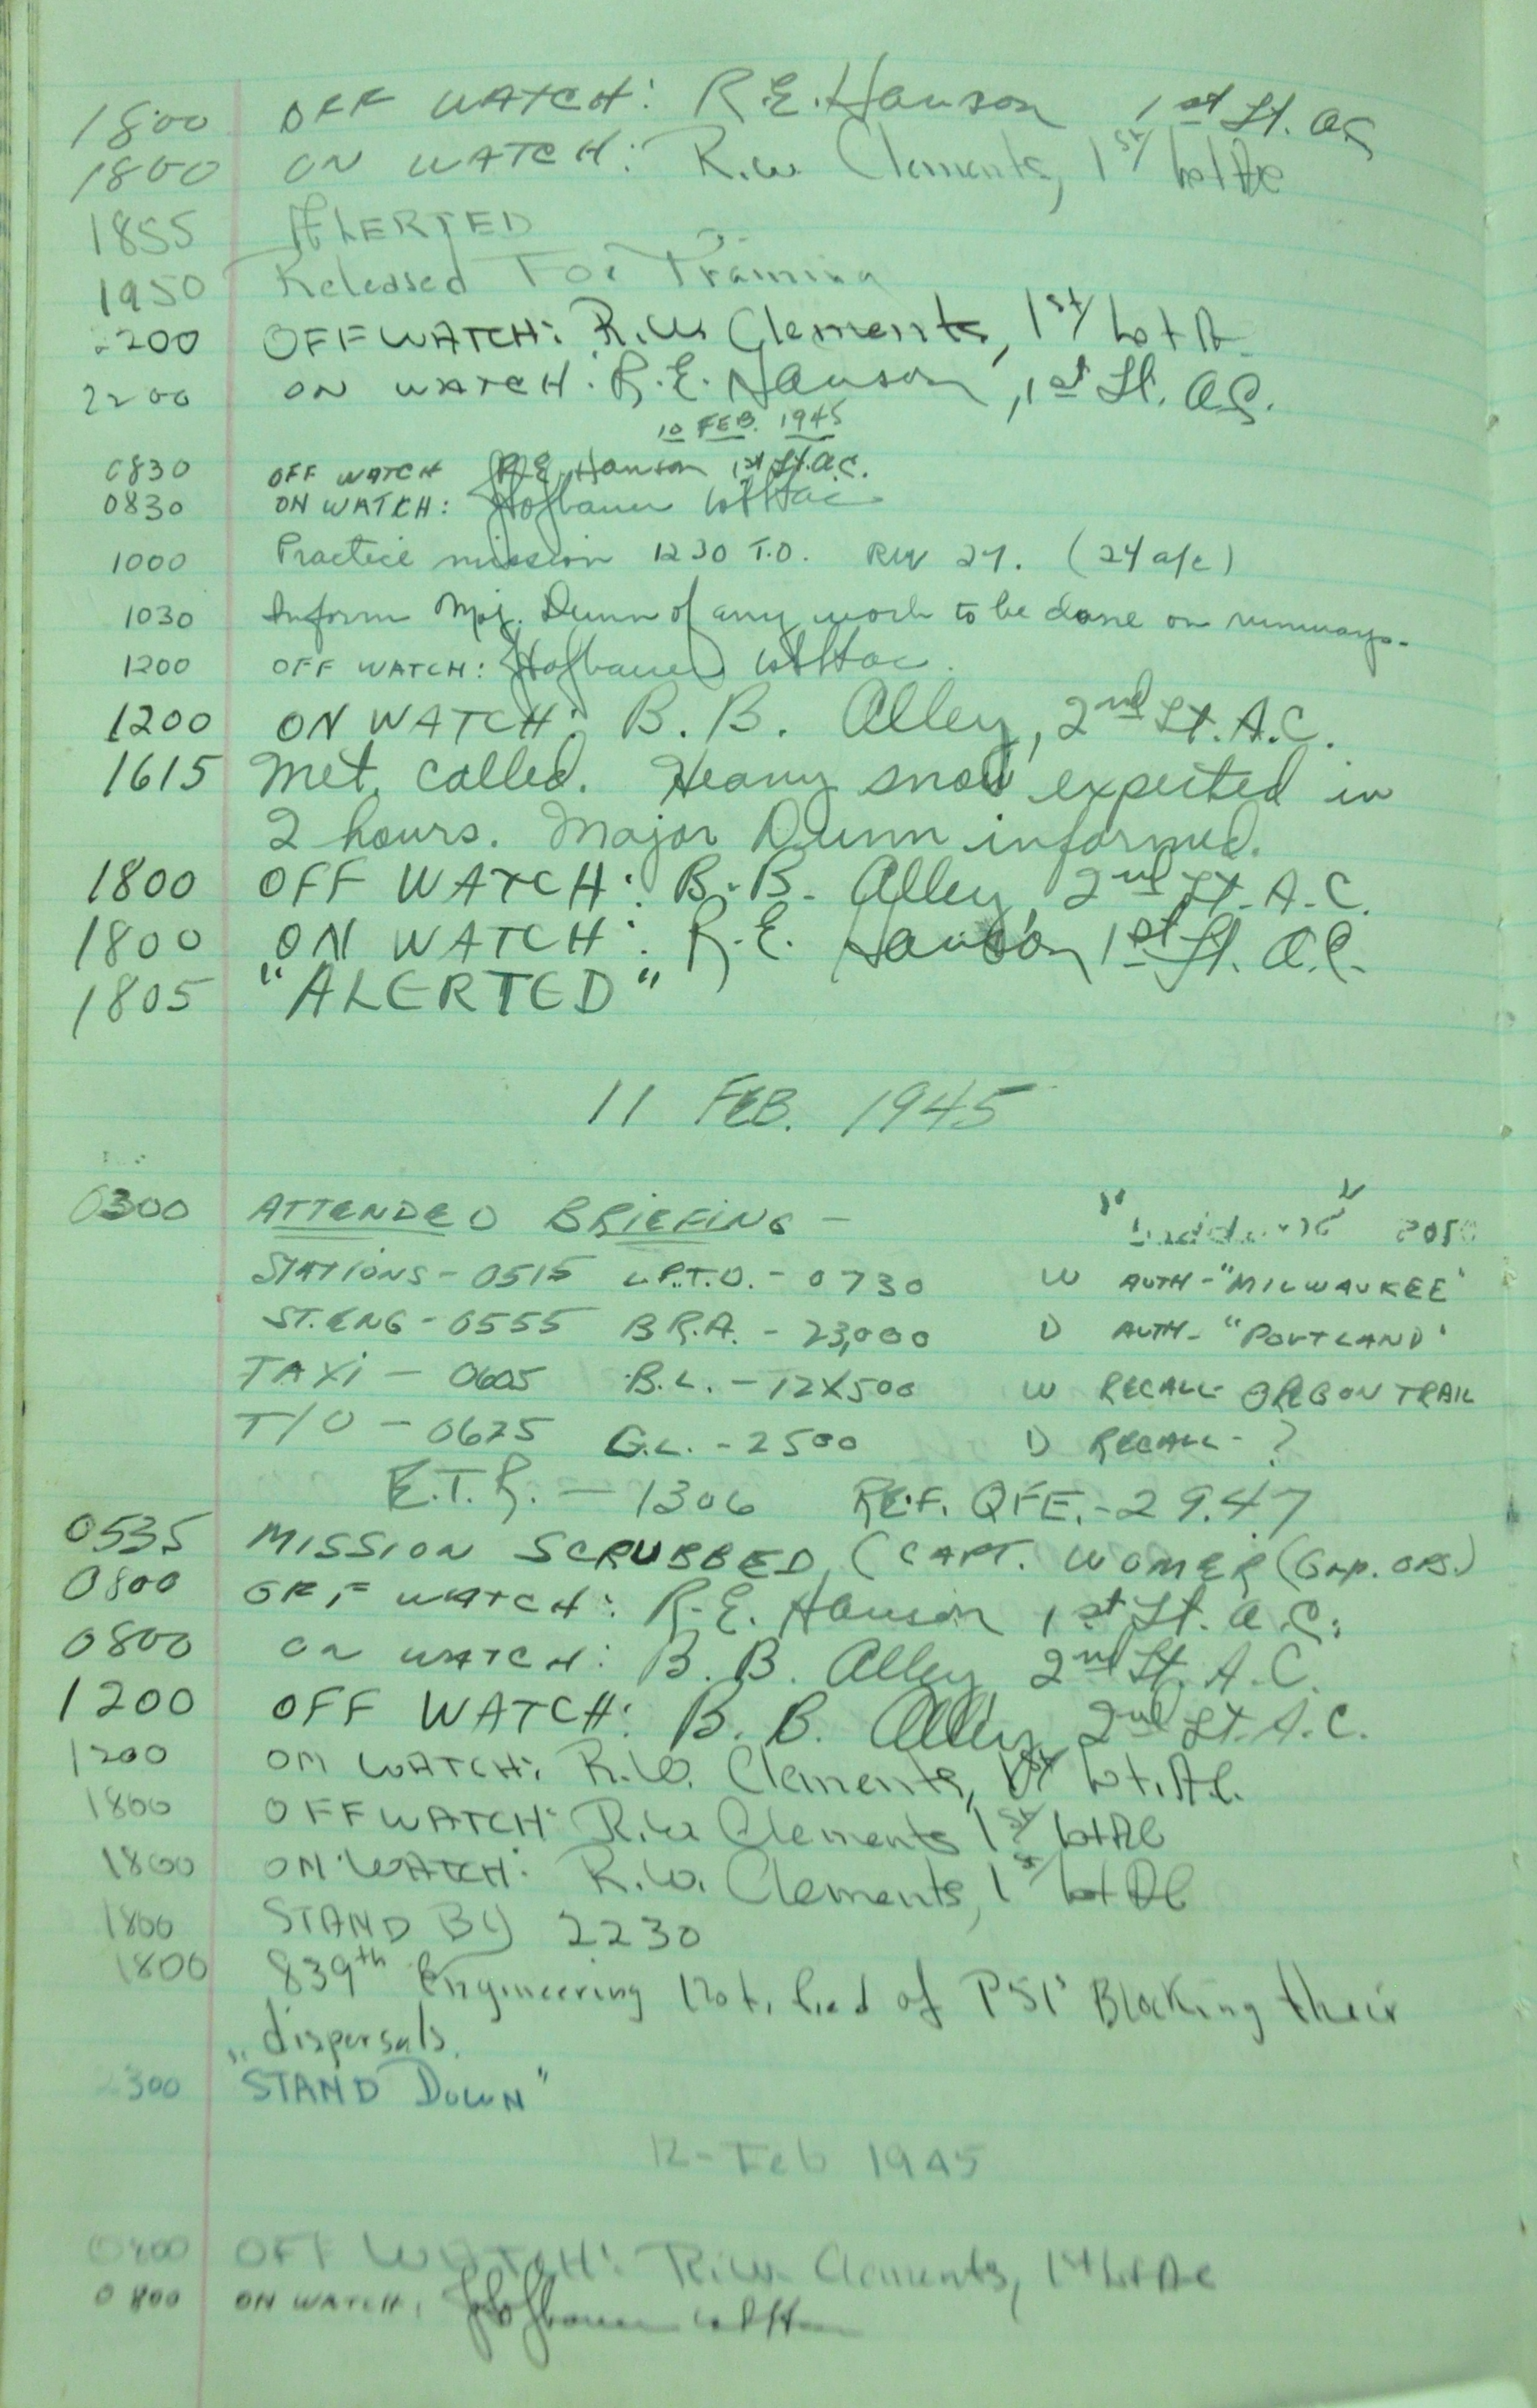 1800 OFF WATCH: R.E. Hanson 1st Lt. AC
1800 ON WATCH: R.W. Clements, 1st Lt AC
1855 ALERTED
1950 Released For Training
2200 OFF WATCH: R.W. Clements, 1st Lt A
2200 ON WATCH: R.E. Hanson, 1st Lt. A.C.
10 FEB. 1945
0830 OFF WATCH R.E. Hanson 1st Lt. A.C.
0830 ON WATCH: Hofbauer 1st Lt ac
1000 Practice mission 1230 T.O. RW 27. (24 a/c)
1030 Inform Maj. Dunn of any work to be done on runways.
1200 OFF WATCH: Hofbauer 1st Lt ac.
1200 ON WATCH: B.B. Alley, 2nd Lt. A.C.
1615 Met. called. Heavy snow expected in
2 hours. Major Dunn informed.
1800 OFF WATCH: B.B. Alley 2nd Lt. A.C.
1800 ON WATCH: R.E. Hanson 1st Lt. A.C.
1805 "ALERTED"
11 FEB. 1945
0300 ATTENDED BRIEFING -
STATIONS - 0515 L.P.T.O. - 0730 W AUTH - "MILWAUKEE"
ST. ENG - 0555 B.R.A. - 23,000 D AUTH - "PORTLAND"
TAXI - 0605 B.L. - 12X500 W RECALL - OREGON TRAIL
T/O - 0625 G.L. - 2500 D RECALL - ?
E.T.R. - 1306 REF. QFE. - 29.47
0535 MISSION SCRUBBED, (CAPT. WOMER (Grp. OPS.)
0800 OFF WATCH: R.E. Hanson 1st Lt. A.C.
0800 ON WATCH: B.B. Alley 2nd Lt. A.C.
1200 OFF WATCH: B.B. Alley 2nd Lt. A.C.
1200 ON WATCH: R.W. Clements, 1st Lt. A.C.
1800 OFF WATCH: R.W. Clements 1st Lt AC
1800 ON WATCH: R.W. Clements, 1st Lt AC
1800 STAND BY 2230
1800 839th Engineering Notified of P51s Blocking their
dispersals.
2300 "STAND DOWN"
12 - Feb 1945
0800 OFF WATCH: R.W. Clements, 1st Lt AC
0800 ON WATCH: Hofbauer 1st Lt